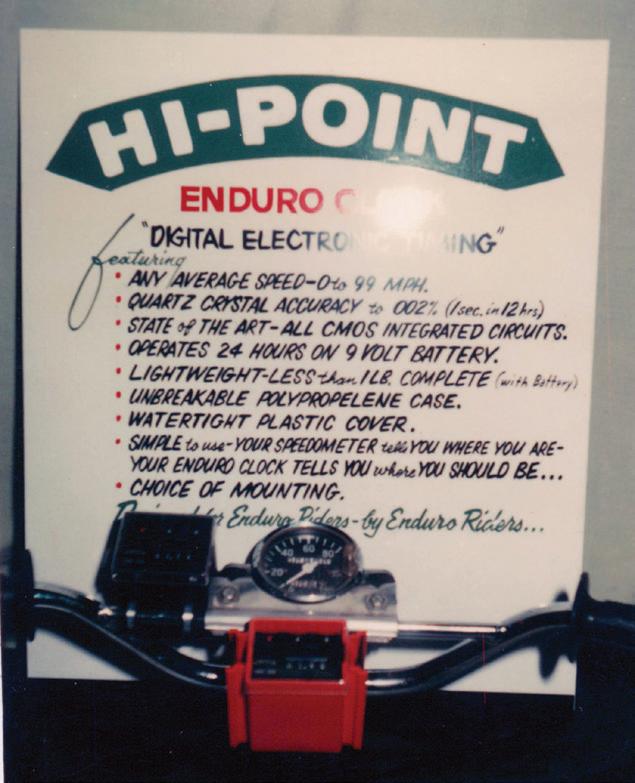 HI-POINT
ENDURO CLOCK
"DIGITAL ELECTRONIC TIMING"
featuring
• ANY AVERAGE SPEED-0 to 99 MPH.
• QUARTZ CRYSTAL ACCURACY to .002% (1 sec. in 12 hrs)
• STATE of THE ART-ALL CMOS INTEGRATED CIRCUITS.
• OPERATES 24 HOURS ON 9 VOLT BATTERY.
• LIGHTWEIGHT-LESS than 1 LB. COMPLETE (with Battery)
• UNBREAKABLE POLYPROPELENE CASE.
• WATERTIGHT PLASTIC COVER.
• SIMPLE to use-YOUR SPEEDOMETER tells YOU WHERE YOU ARE-
YOUR ENDURO CLOCK TELLS YOU where YOU SHOULD BE...
• CHOICE OF MOUNTING.
for Enduro Riders-by Enduro Riders...
20 40 60 80